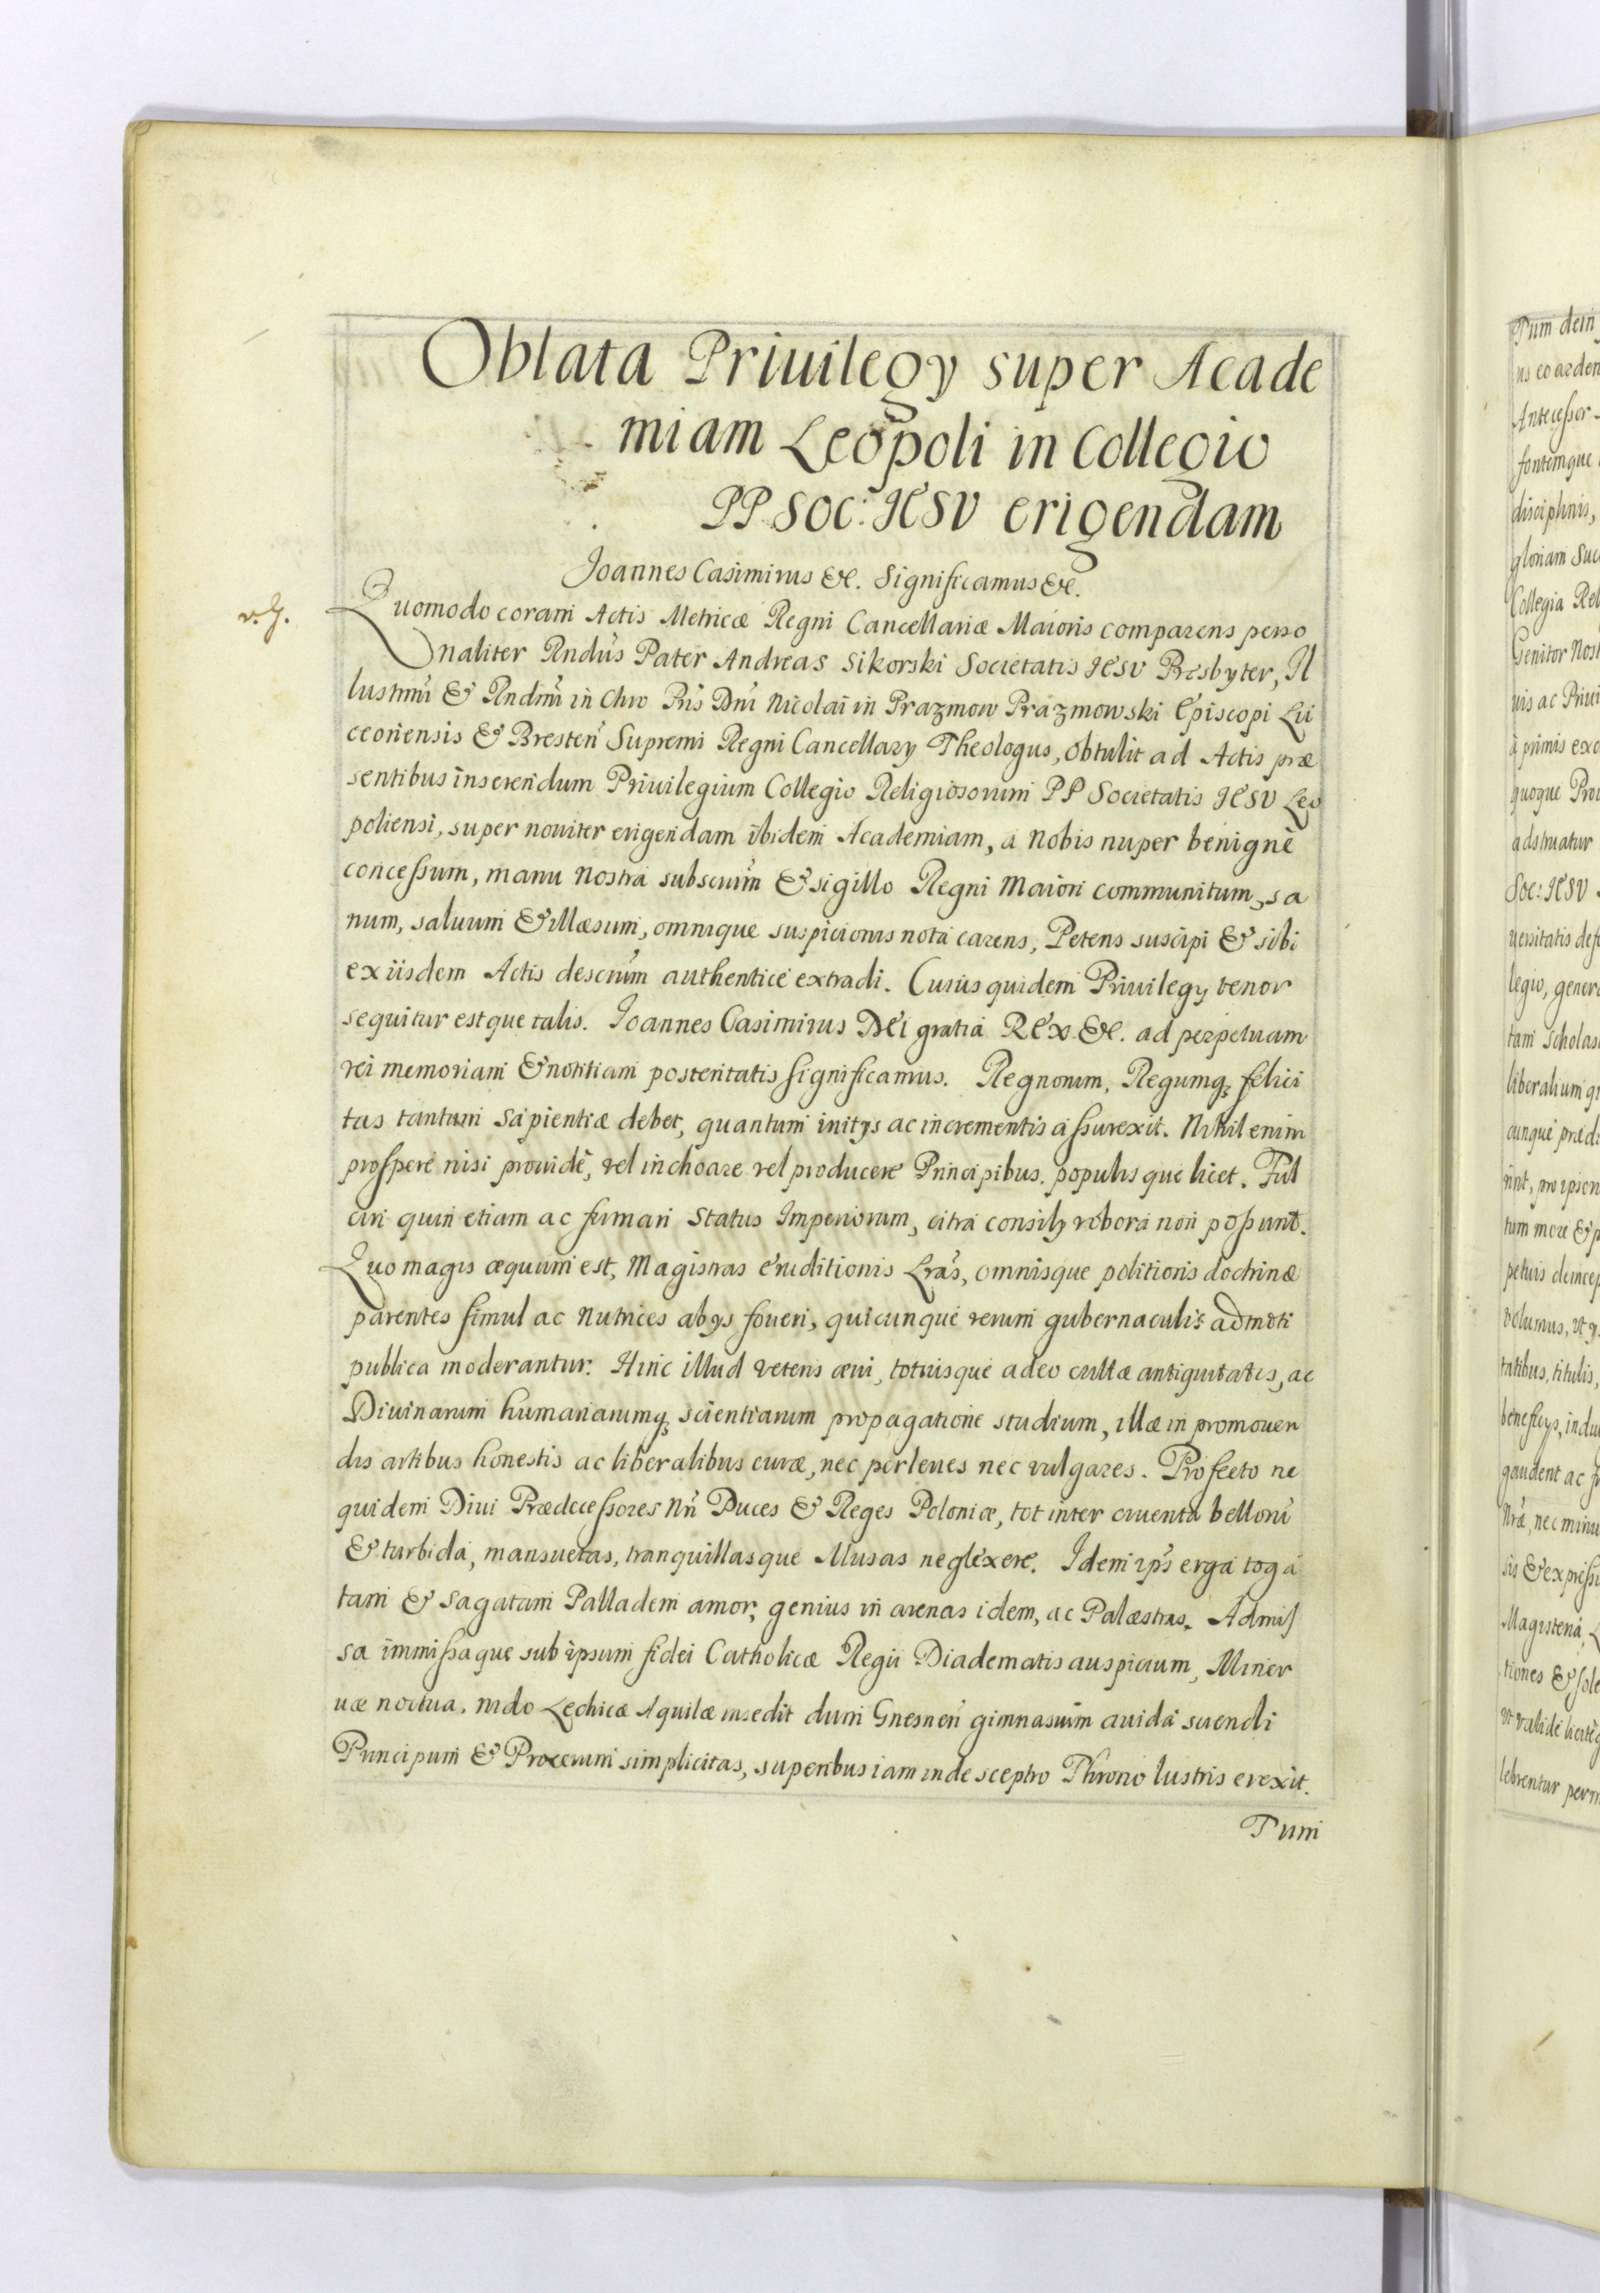 Oblata Priuilegy super Acade
miam Leopoli in Collegio
PP. SOC: IESV erigendam
Joannes Casimirus &c. Significamus &c.
v. J.
Quomodo coram Actis Metricæ Regni Cancellariæ Maioris comparens perso
naliter Rndus Pater Andreas Sikorski Societatis IESV Presbyter, Il
lustrmi & Rndmi in Chro Pris Dni Nicolai in Prazmow Prazmowski Episcopi Lu
ceoriensis & Bresten Supremi Regni Cancellary Theologus, obtulit ad Actis præ
sentibus inserendum Priuilegium Collegio Religiosorum PP Societatis IESV Leo
poliensi, super nouiter erigendam ibidem Academiam, a Nobis nuper benigne
concessum, manu Nostra subscrim & sigillo Regni Maiori communitum, sa
num, saluum & illæsum, omnique suspicionis nota carens, Petens suscipi & sibi
ex iisdem Actis descrim authentice extradi. Cuius quidem Priuilegy tenor
sequitur estque talis. Joannes Casimirus DEI gratia REX &c. ad perpetuam
rei memoriam & notitiam posteritatis significamus. Regnorum, Regumq; felici
tas tantum sapientiæ debet, quantum initys ac incrementis assurexit. Nihil enim
prospere nisi prouide, vel inchoare vel producere Principibus. populisque licet. Ful
ciri quin etiam ac firmari Status Imperiorum, citra consily robora non possunt.
Quo magis æquum est, Magistras eruditionis Lras, omnisque politioris doctrinæ
parentes simul ac Nutrices abys foueri, quicunque rerum gubernaculis admoti
publica moderantur. Hinc illud veteris æui, totiusque adeo cultæ antiquitatis, ac
Diuinarum humanarumq; scientiarum propagatione studium, illæ in promouen
dis artibus honestis ac liberalibus curæ, nec perleues nec vulgares. Profecto ne
quidem Diui Prædecessores Nri Duces & Reges Poloniæ, tot inter cruenta belloru
& turbida, mansuetas, tranquillasque Musas neglexere. Idem ips erga toga
tam & Sagatam Palladem amor, genius in arenas idem, ac Palæstras. Admis
sa immissaque sub ipsum fidei Catholicæ Regii Diadematis auspicium, Miner
uæ noctua, nido Lechicæ Aquilæ insedit dum Gnesnen gimnasium auida sciendi
Principum & Procerum simplicitas, superibus iam inde sceptro Throno lustris erexit.
Tum